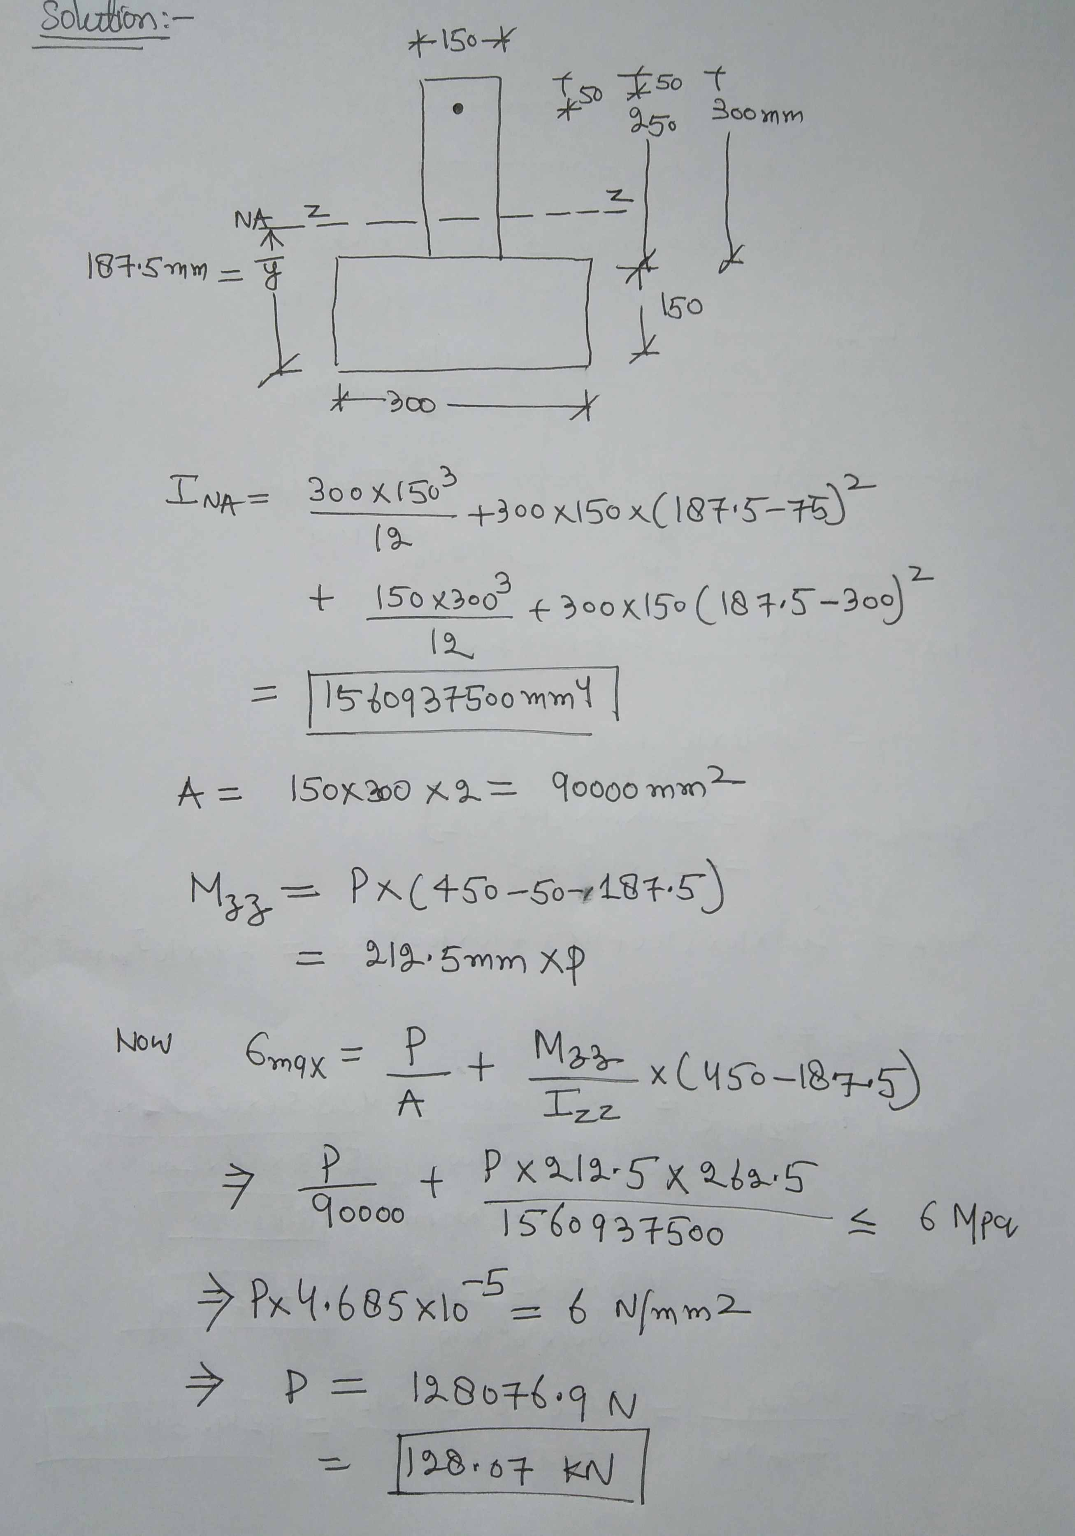 Solution:-
150
50 50
250 300mm
NA z z
187.5mm = ȳ
150
300
I NA = 300x150³/12 + 300x150x(187.5-75)²
+ 150x300³/12 + 300x150(187.5-300)²
= 1560937500mm4
A = 150x300x2 = 90000mm2
Mzz = Px(450-50-187.5)
= 212.5mm xP
Now 6max = P/A + Mzz/Izz x(450-187.5)
⇒ P/90000 + Px212.5x262.5/1560937500 ≤ 6 Mpa
⇒ Px4.685x10⁻⁵ = 6 N/mm2
⇒ P = 128076.9 N
= 128.07 KN